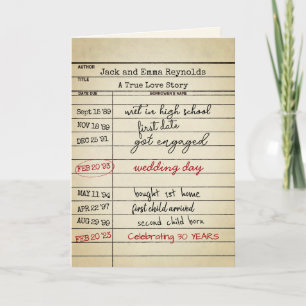 AUTHOR Jack and Emma Reynolds
TITLE A True Love Story
DATE DUE BORROWER'S NAME
Sept 15 '89 met in high school
NOV 18 '89 first date
DEC 25 '91 got engaged
FEB 20 '93 wedding day
MAY 11 '94 bought 1st home
APR 22 '97 first child arrived
AUG 29 '99 second child born
FEB 20 '23 Celebrating 30 YEARS